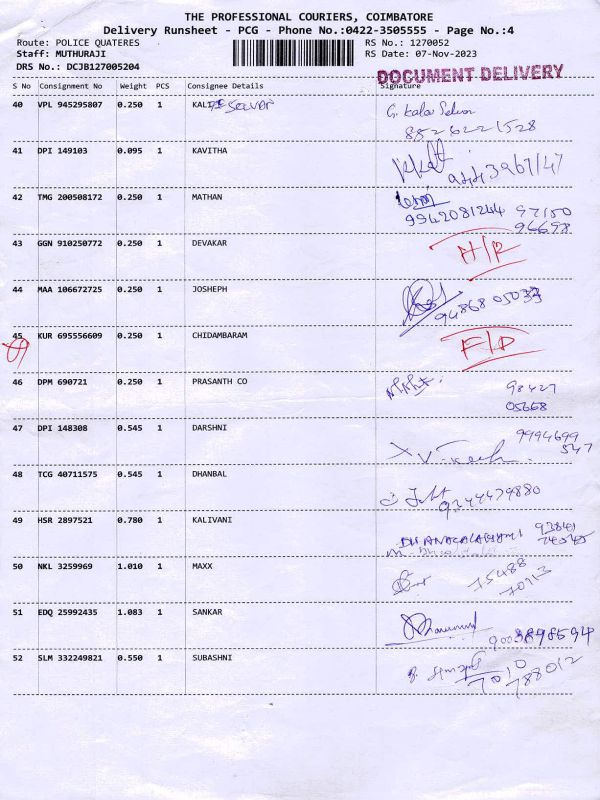 THE PROFESSIONAL COURIERS, COIMBATORE
Delivery Runsheet - PCG - Phone No.:0422-3505555 - Page No.:4
Route: POLICE QUATERES RS No.: 1270052
Staff: MUTHURAJI RS Date: 07-Nov-2023
DRS No.: DCJB127005204
DOCUMENT DELIVERY
S No Consignment No Weight PCS Consignee Details Signature
40 VPL 945295807 0.250 1 KALAI SELVAR G. Kalai Selvan
8526221528
41 DPI 149103 0.095 1 KAVITHA
42 TMG 200508172 0.250 1 MATHAN
9942081244 97150
96698
43 GGN 910250772 0.250 1 DEVAKAR
44 MAA 106672725 0.250 1 JOSHEPH
94868 05033
45 KUR 695556609 0.250 1 CHIDAMBARAM F/D
46 DPM 690721 0.250 1 PRASANTH CO 98427
05668
47 DPI 148308 0.545 1 DARSHNI 9994699
547
48 TCG 40711575 0.545 1 DHANBAL
9244479880
49 HSR 2897521 0.780 1 KALIVANI DHANAGALAKSHMI
50 NKL 3259969 1.010 1 MAXX 75488
70713
51 EDQ 25992435 1.083 1 SANKAR
9003898594
52 SLM 332249821 0.550 1 SUBASHNI 7010
788012